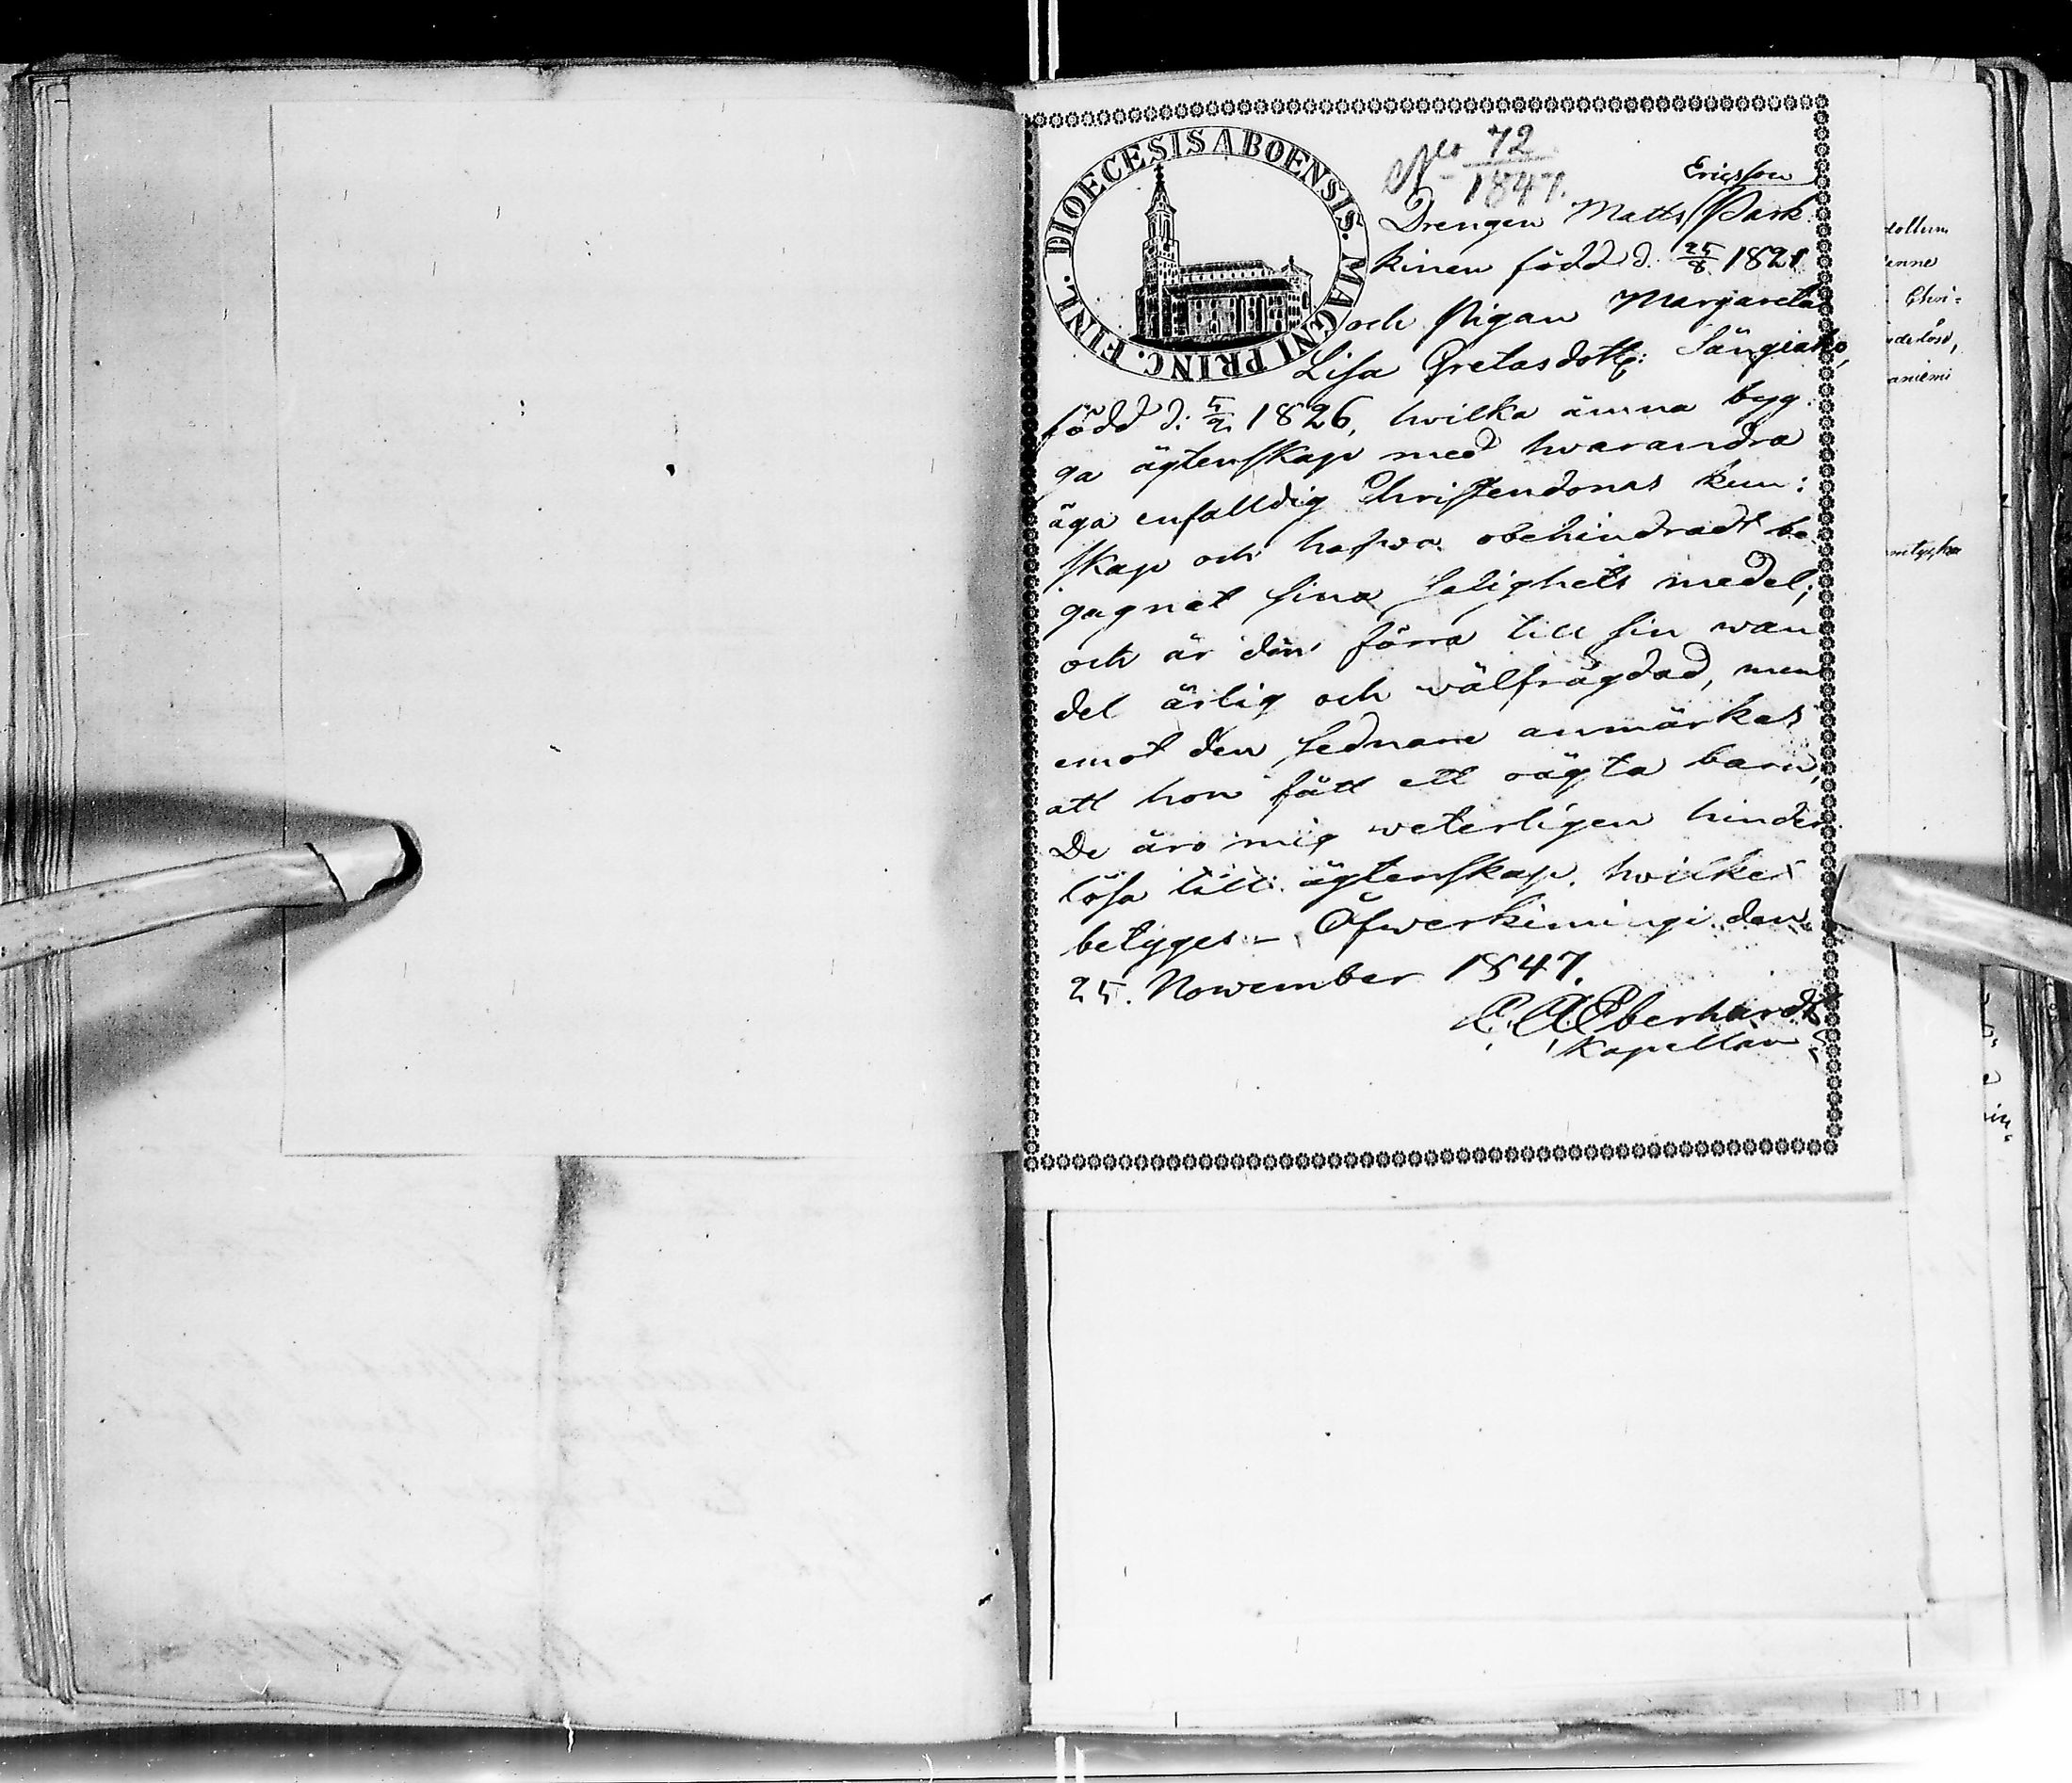 DIOECESIS ABOENSIS. MAGNI PRINC. FINL.
No 72
1847.
Ericsson
Drengen Matts Park
kinen född d. 25/8 1821
och Pigan Margareta
Lisa Gretasdottr:
född d. 5/9 1826, hwilka ämna byg
ga ägtenskap med hwarandra
äga enfalldig Christendoms kun:
skap och hafwa obehindradt be
gagnat sina salighets medel;
och är den förra till sin wan
del ärlig och wälfrägdad, men
emot den sednare anmärkes
att hon fått ett oägta barn,
De äro mig weterligen hinder
lösa till ägtenskap. hwilket
betyges – Öfwerkimingi den
25. November 1847.
C. A. Eberhardt
Kapellan